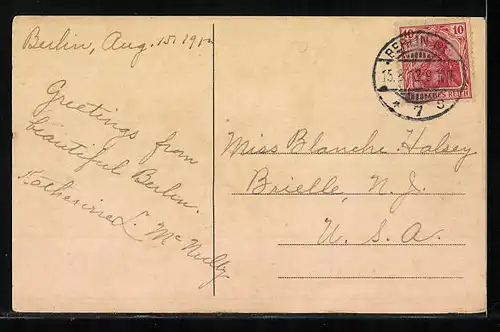 Berlin, Aug. 15. 1912
Greetings from
beautiful Berlin.
Katherine L. McNulty
10 10
BERLIN
REICH
Miss Blanche Halsey
Brielle, N. J.
U. S. A.